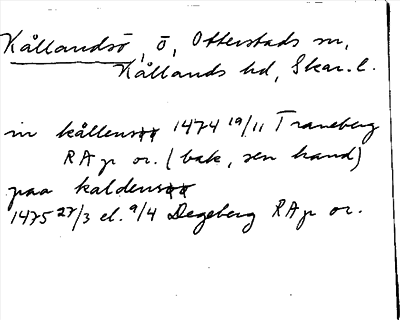 Kållandsö, ö, Otterstads sn,
Kållands hd, Skar. l.
in kållensøø 1474 19/11 Traneberg
RAp or. (bak, sen hand)
paa kaldensøø
1475 27/3 el. 9/4 Degeberg RAp or.